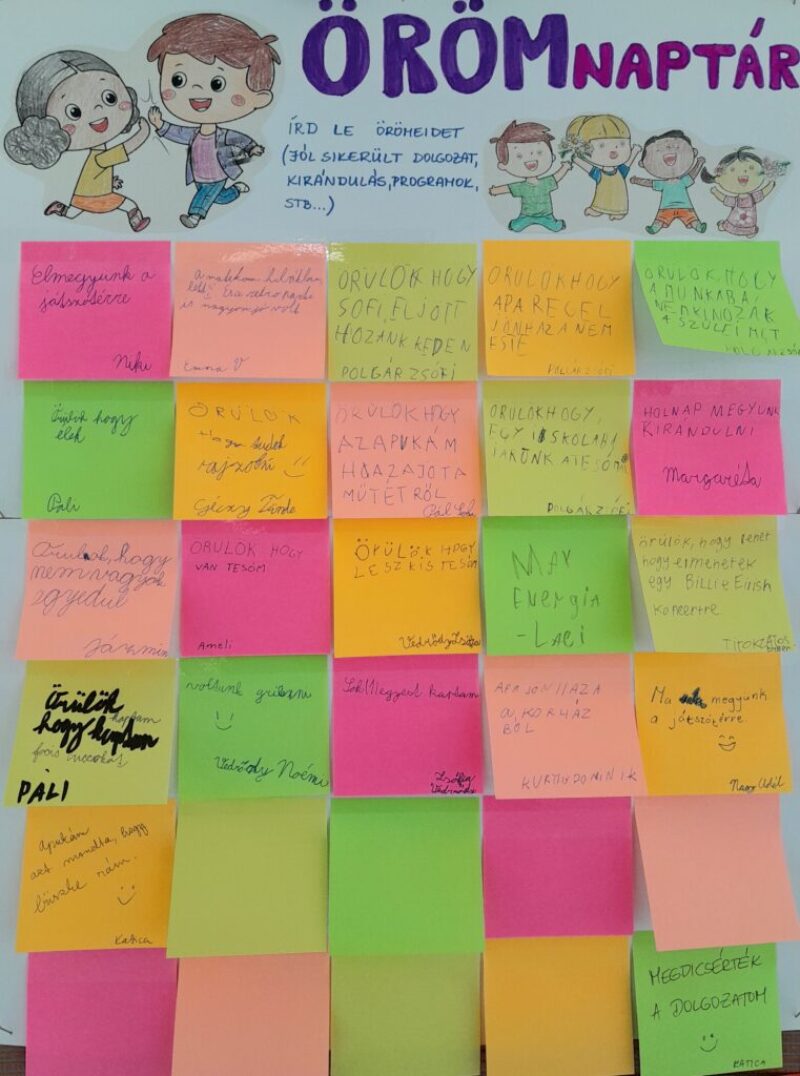 ÖRÖMNAPTÁR
ÍRD LE ÖRÖMEIDET
(JÓL SIKERÜLT DOLGOZAT,
KIRÁNDULÁS, PROGRAMOK,
STB...)
Elmegyünk a
játszótérre
Niki
A matekom hibátlan
lett!
is nagyon jó volt
Emma V
ÖRÜLÖK HOGY
SOFI, ELJÖTT
HOZÁNK KEDEN
POLGÁR ZSÓFI
ÖRÜLÖK HOGY
APA REGEL
JÖN HAZA NEM
ESTE
POLGÁR ZSÓFI
ÖRÜLÖK, HOGY
A MUNKÁBA,
NEM KINOZÁK
A SZÜLEIMET
Örülök hogy
élek
Pali
ÖRÜLÖK
hogy tudok
rajzolni
Géczy Tünde
ÖRÜLÖK HOGY
AZ APUKÁM
HAZAJÖT A
MŰTÉTRŐL
ÖRÜLÖK HOGY,
EGY ISKOLÁBA
JÁRUNK A TESÓM
POLGÁR ZSÓFI
HOLNAP MEGYÜNK
KIRÁNDULNI
Margaréta
Örülök, hogy
nem vagyok
egyedül
Jázmin
ÖRÜLÖK HOGY
VAN TESÓM
Ameli
ÖRÜLÖK HOGY
LESZ KIS TESÓM
Vedrődy Zsófia
MAX
ENERGIA
- LACI
Örülök, hogy lehet
hogy elmehetek
egy Billie Eilish
koncertre.
TITOKZATOS
EMBER
Örülök
hogy kaptam
focis cuccokat
PALI
voltunk grillezni
Vedrődy Noémi
Sok Meggyest kaptam
Zsófia
Vedrődy
APA JÖN HAZA
A, KÓRHÁZ
BÓL
KURTI DOMINIK
Ma megyünk
a játszótérre.
Nagy Adél
Apukám
azt mondta, hogy
büszke rám.
KATICA
MEGDICSÉRTÉK
A DOLGOZATOM
KATICA